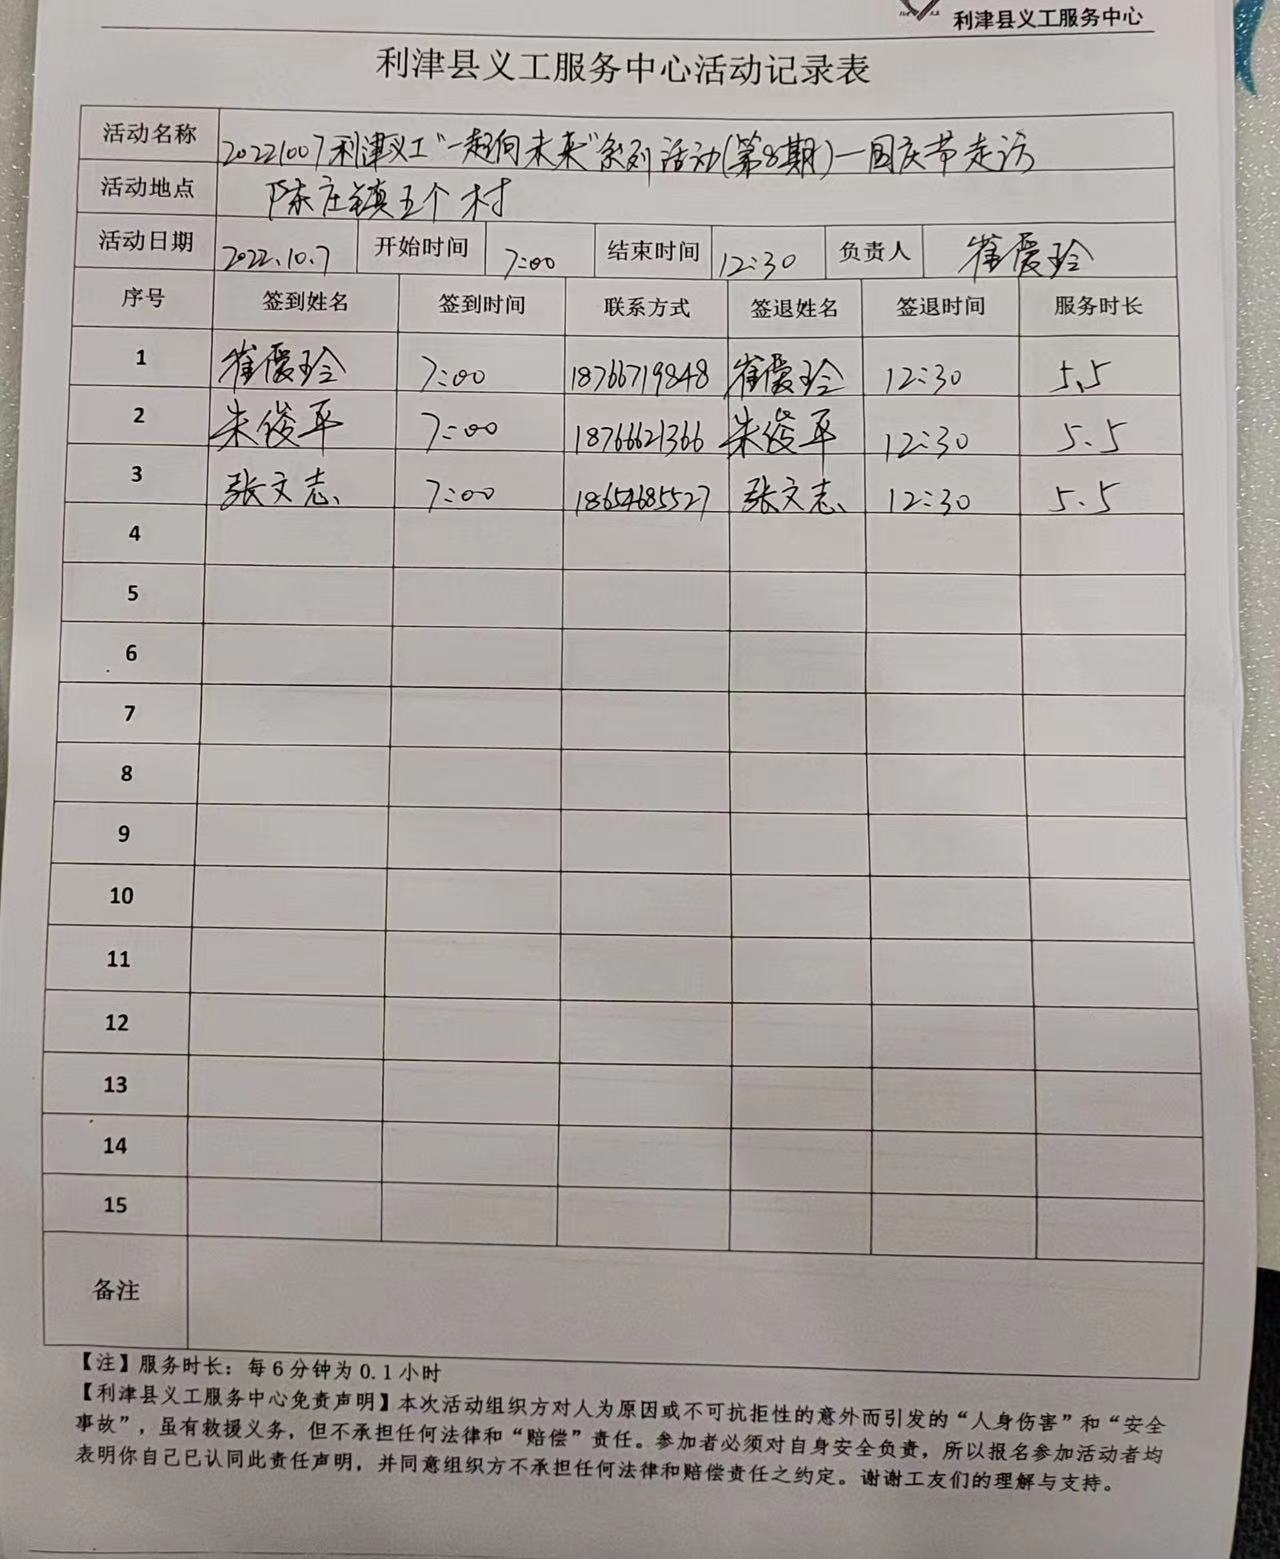 利津县义工服务中心
利津县义工服务中心活动记录表
活动名称 20221007利津义工“一起向未来”系列活动(第8期)—国庆节走访
活动地点 陈庄镇五个村
活动日期 2022.10.7 开始时间 7:00 结束时间 12:30 负责人 崔爱玲
序号 签到姓名 签到时间 联系方式 签退姓名 签退时间 服务时长
1 崔爱玲 7:00 18766719848 崔爱玲 12:30 5.5
2 朱俊平 7:00 18766621366 朱俊平 12:30 5.5
3 张文志 7:00 18654685527 张文志 12:30 5.5
4
5
6
7
8
9
10
11
12
13
14
15
备注
【注】服务时长：每6分钟为0.1小时
【利津县义工服务中心免责声明】本次活动组织方对人为原因或不可抗拒性的意外而引发的“人身伤害”和“安全
事故”，虽有救援义务，但不承担任何法律和“赔偿”责任。参加者必须对自身安全负责，所以报名参加活动者均
表明你自己已认同此责任声明，并同意组织方不承担任何法律和赔偿责任之约定。谢谢工友们的理解与支持。